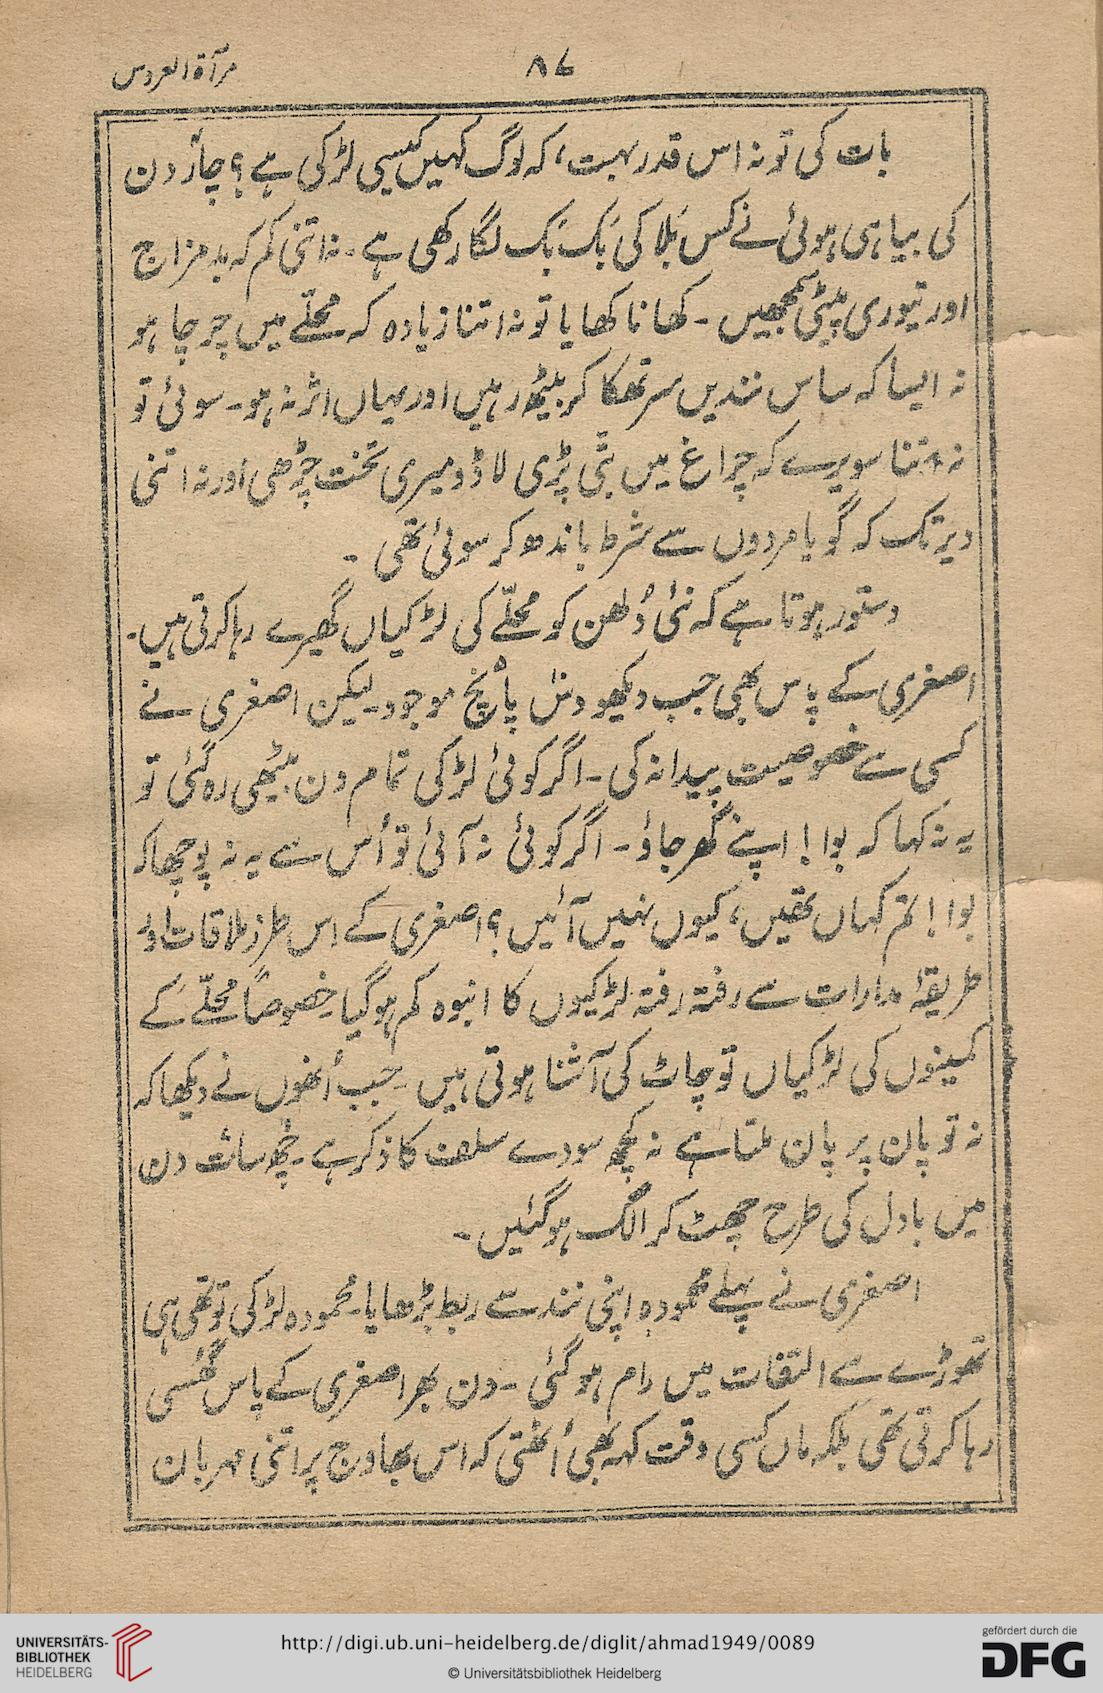 مرآۃ العروس
۸۷
بات کی تو نہ اس قدر بہت، کہ لوگ کہیں کیسی لڑکی ہے؟ چار دن
کی بیاہی ہوئی نے کس بَلا کی بَک بَک لگا رکھی ہے۔ نہ اتنی کم کہ بد مزاج
اور تیوری پیٹی سمجھیں۔ کھانا کھایا تو نہ اتنا زیادہ کہ محلّے میں چرچا ہو
نہ ایسا کہ ساس نندیں سر تھکا کر بیٹھ رہیں اور یہاں اثر نہ ہو۔ سوئی تو
نہ اتنا سویرے کہ چراغ میں بتّی پڑی لاڈو میری تخت چڑھی اور نہ اتنی
دیر تک کہ گویا مردوں سے شرط باندھ کر سوئی تھی۔
دستور ہوتا ہے کہ نئی دُلھن کو محلّے کی لڑکیاں گھیرے رہا کرتی ہیں۔
اصغری کے پاس بھی جب دیکھو دس پانچ موجود۔ لیکن اصغری نے
کسی سے خصوصیت پیدا نہ کی۔ اگر کوئی لڑکی تمام دن بیٹھی رہ گئی تو
یہ نہ کہا کہ بوا! اپنے گھر جاؤ۔ اگر کوئی نہ آئی تو اُس سے یہ نہ پوچھا کہ
بوا! تم کہاں تھیں، کیوں نہیں آئیں؟ اصغری کے اس طرز ملاقات اور
طریقۂ مدارات سے رفتہ رفتہ لڑکیوں کا انبوہ کم ہو گیا۔ خصوصاً محلّے کے
کمینوں کی لڑکیاں تو چاٹ کی آشنا ہوتی ہیں۔ جب اُنھوں نے دیکھا کہ
نہ تو پان پر پان ملتا ہے نہ کچھ سودے سلف کا ذکر ہے۔ چھ سات دن
میں بادل کی طرح چھٹ کر الگ ہو گئیں۔
اصغری نے پہلے محمودہ اپنی نند سے ربط بڑھایا۔ محمودہ لڑکی تو تھی ہی
تھوڑے سے التفات میں رام ہو گئی۔ دن بھر اصغری کے پاس گھُسی
رہا کرتی تھی بلکہ ماں کسی وقت کہہ بھی اُٹھتی کہ اس بھاوج پر اتنی مہربان
UNIVERSITÄTS-
BIBLIOTHEK
HEIDELBERG
http://digi.ub.uni-heidelberg.de/diglit/ahmad1949/0089
© Universitätsbibliothek Heidelberg
gefördert durch die
DFG